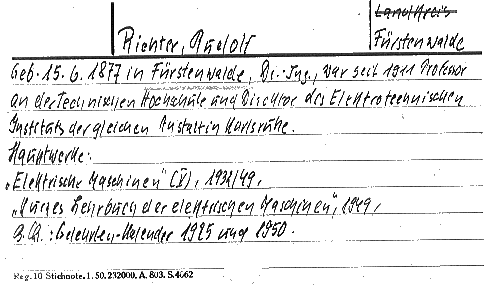 Landkreis
Richter, Rudolf
Fürstenwalde
Geb. 15. 6. 1877 in Fürstenwalde, Dr.-Ing., war seit 1911 Professor
an der Technischen Hochschule und Direktor des Elektrotechnischen
Instituts der gleichen Anstalt in Karlsruhe.
Hauptwerke:
„Elektrische Maschinen" (V), 1924/49,
„Kurzes Lehrbuch der elektrischen Maschinen", 1949,
Gelehrten-Kalender 1925 und 1950.
Reg. 10 Stichnote. 1. 50. 232000. A. 803. S. 4662